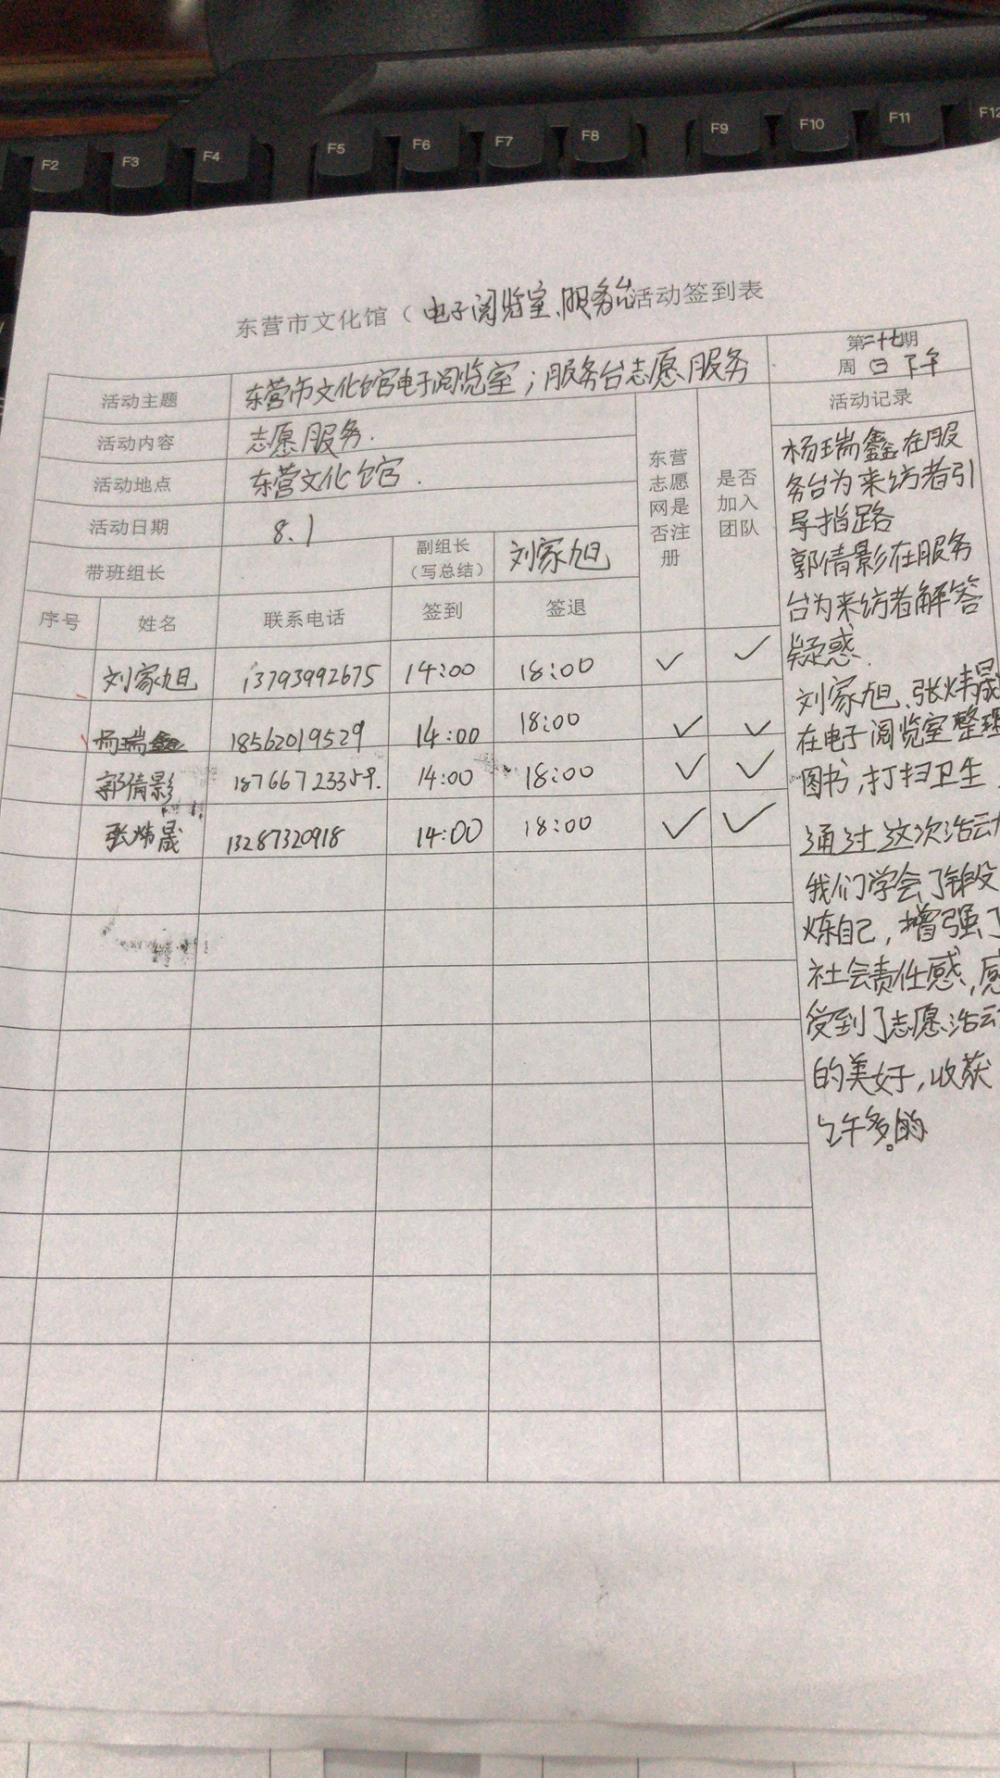 F2 F3 F4 F5 F6 F7 F8 F9 F10 F11 F12
东营市文化馆（电子阅览室、服务台活动签到表
活动主题 东营市文化馆电子阅览室；服务台志愿服务 第二十七期
周日下午
活动内容 志愿服务. 活动记录
活动地点 东营文化馆.
活动日期 8.1
东营志愿网是否注册
是否加入团队
带班组长 副组长（写总结） 刘家旭
序号 姓名 联系电话 签到 签退
刘家旭 13793992675 14:00 18:00 ✓ ✓
杨瑞鑫 18562019529 14:00 18:00 ✓ ✓
郭倩影 18766723359. 14:00 18:00 ✓ ✓
张炜晟 13287320918 14:00 18:00 ✓ ✓
杨瑞鑫在服
务台为来访者引
导指路
郭倩影在服务
台为来访者解答
疑惑.
刘家旭、张炜晟
在电子阅览室整理
图书,打扫卫生.
通过这次活动
我们学会了锻
炼自己,增强了
社会责任感,感
受到了志愿活动
的美好,收获
许多的。